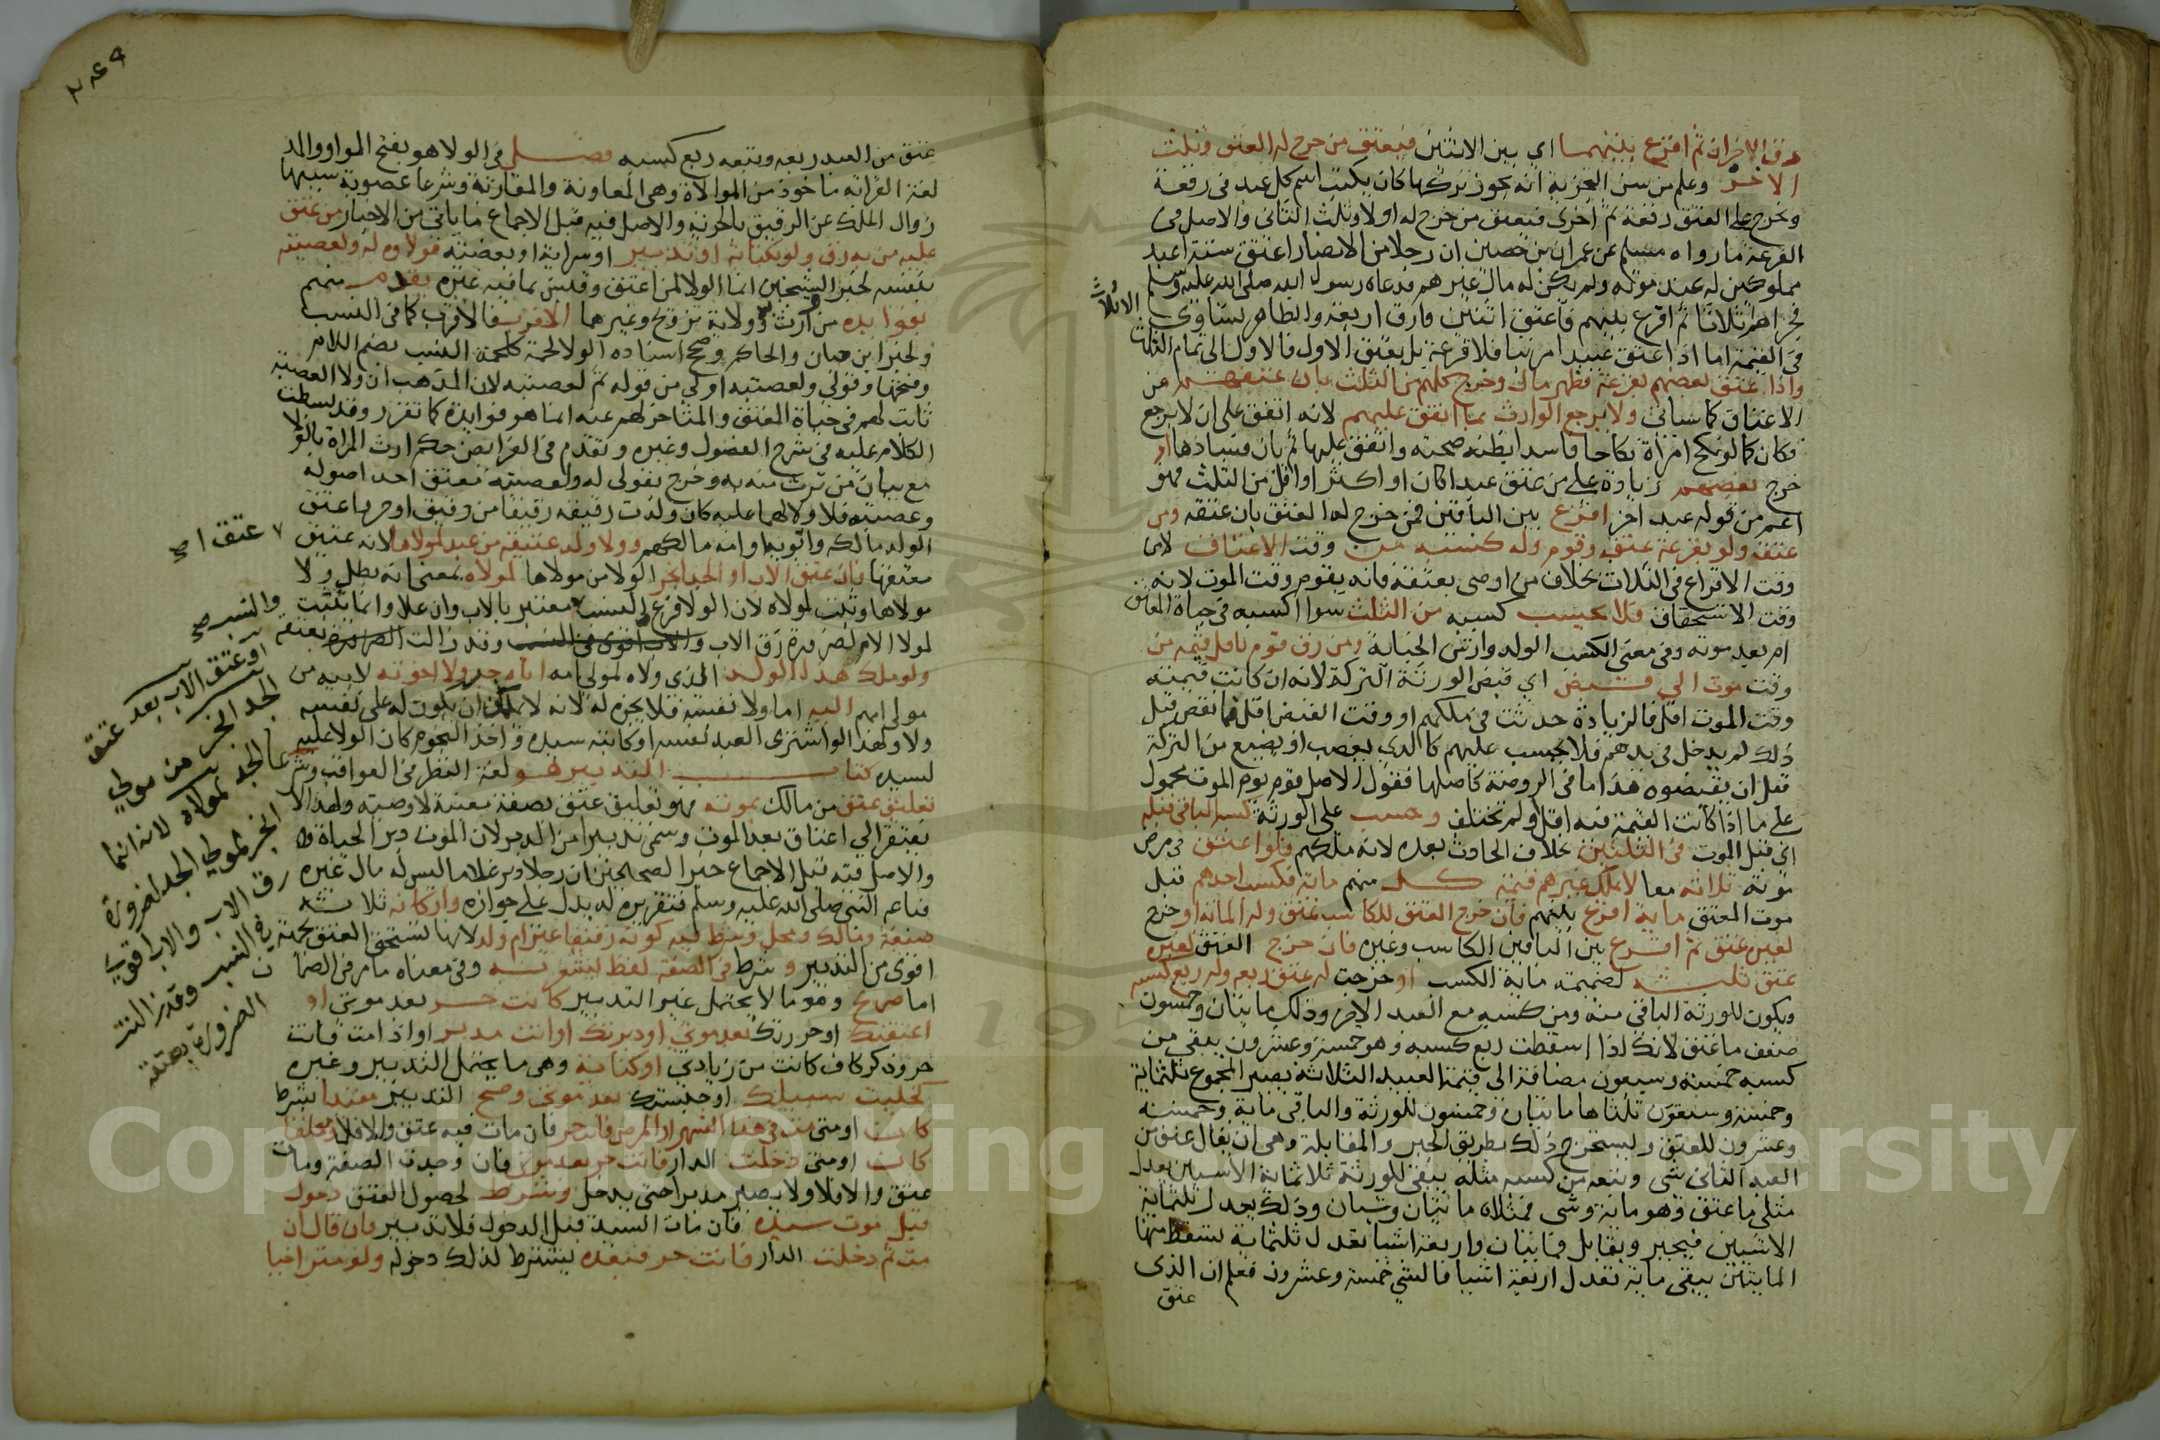 رق الاخران ثم اقرع بينهما اي بين الاثنين فيعتق من خرج له العتق وثلث
الاخر وعلم من سن التجزية انه يجوز تركها كان يكتب اسم كل عبد في رقعة
ويخرج على العتق رقعة ثم اخرى فيعتق من خرج له اولا وثلث الثاني والاصل في
القرعة ما رواه مسلم عن عمران بن حصين ان رجلا من الانصار اعتق ستة اعبد
مملوكين له عند موته ولم يكن له مال غيرهم فدعاه رسول الله صلى الله عليه وسلم
فجزاهم ثلاثا ثم اقرع بينهم فاعتق اثنين وارق اربعة والظاهر تساوي الاثلاث
في القيمة اما اذا اعتق عبيدا مرتبا فلا قرعة بل يعتق الاول فالاول الى تمام الثلث
واذا عتق بعضهم بقرعة فظهر مال وخرج كلهم من الثلث بان عتقهم من
الاعتاق كما سياتي ولا يرجع الوارث بما انفق عليهم لانه انفق على ان لا يرجع
فكان كما لو نكح امراة نكاحا فاسدا يظنه صحته وانفق عليها ثم بان فسادها او
خرج بعضهم زيادة على من عتق عبدا كان او اكثر او اقل من الثلث فهو
اعم من قوله عبد اخر اقرع بين الباقين فمن خرج له العتق بان عتقه ومن
عتقه ولو بقرعة عتق وقوم وله كسبه من وقت الاعتاق لا من
وقت الاقراع في الثلاث بخلاف من اوصى بعتقه فانه يقوم وقت الموت لانه
وقت الاستحقاق فلا يحسب كسبه من الثلث سوا اكسبه في حياة المعتق
ام بعد موته وفي معنى الكسب الولد وارش الجناية ومن رق قوم باقل قيمه من
وقت موت الى قبض اي قبض الورثة التركة لانه ان كانت قيمته
وقت الموت اقل فالزيادة حدثت في ملكهم او وقت القبض اقل فما نقص قبل
ذلك لم يدخل في يدهم فلا يحسب عليهم كالذي يغصب او يضيع من التركة
قبل ان يقبضوه هذا ما في الروضة كاصلها فقول الاصل قوم يوم الموت محمول
على ما اذا كانت القيمة فيه اقل او لم تختلف وحسب على الورثة كسبه الباقي قبله
اي قبل الموت في الثلثين بخلاف الحادث بعده لانه ملكهم فلو اعتق في مرض
موته ثلاثة معا لا يملك غيرهم قيمة كل منهم مائة فكسب احدهم قبل
موت المعتق مائة اقرع بينهم فان خرج العتق للكاسب عتق وله المائة او خرج
لغيره عتق ثم اقرع بين الباقين الكاسب وغيره فان خرج العتق لغيره
عتق ثلثه لضميمة مائة الكسب او خرجت له عتق ربعه وله ربع كسبه
ويكون للورثة الباقي منه ومن كسبه مع العبد الاخر وذلك مائتان وخمسون
ضعف ما عتق لانك اذا اسقطت ربع كسبه وهو خمسة وعشرون يبقى من
كسبه خمسة وسبعون مضافة الى قيمة العبيد الثلاثة يصير المجموع ثلثماية
وخمسة وسبعون ثلثاها مائتان وخمسون للورثة والباقي مائة وخمسة
وعشرون للعتق ويستخرج ذلك بطريق الجبر والمقابلة وهي ان يقال عتق من
العبد الثاني شي وتبعه من كسبه مثله يبقى للورثة ثلاثمائة الا شيئين يعدل
مثلي ما عتق وهو مائة وشي فمثلاه مائتان وشيان وذلك يعدل ثلثمائة
الا شيئين فيجبر ويقابل فمائتان واربعة اشيا تعدل ثلثماية تسقط منها
المايتين يبقى مائة تعدل اربعة اشيا فالشي خمسة وعشرون فعلم ان الذي
عتق
٢٤٩
عتق من العبد ربعه وتبعه ربع كسبه فصل في الولا هو بفتح الواو والمد
لغة القرابة ماخوذ من الموالاة وهي المعاونة والمقارنة وشرعا عصوبة سببها
زوال الملك عن الرقيق بالحرية والاصل فيه قبل الاجماع ما ياتي من الاخبار من عتق
عليه من به رق ولو بكتابة او تدبير او سراية او بعضية فولاوه له ولعصبته
بنفسه لخبر الشيخين انما الولا لمن اعتق وقيس بما فيه غيره يقدم منهم
بفوايده من ارث وولاية تزويج وغيرها الاقرب فالاقرب كما في النسب
ولخبر ابن حبان والحاكم وصحح اسناده الولا لحمة كلحمة النسب بضم اللام
وفتحها وقولي ولعصبته اولى من قوله ثم لعصبته لان المذهب ان ولا العصبة
ثابت لهم في حياة المعتق والمتاخر لهم عنه انما هو فوايده كما تقرر وقد بسطت
الكلام عليه في شرح الفصول وغيره وتقدم في الفرائض حكم ارث المراة بالولا
مع بيان من ترث منه به وخرج بقولي له ولعصبته معتق احد اصوله
وعصبته فلا ولا لهما عليه كان ولدت رقيقه رقيقا من رقيق او حر فاعتق
الولد مالكه وابويه او امه مالكهم وولا ولد عتيقه من عبد لمولاها لانه عتيق
معتقها فان عتق الاب او الجد انجر الولا من مولاها لمولاه بمعنى انه بطل ولا
مولاها وثبت لمولاه لان الولا فرع النسب والنسب معتبر بالاب وان علا وانما ثبتت
لمولى الام لضرورة رق الاب والاب اقوى في النسب وقد زالت الضرورة بعتقه
ولو ملك هذا الولد الذي ولاه لمولى امه اباه جر ولا اخوته لابيه من
مولى امهم اليه اما ولا نفسه فلا يجره له لانه لا يمكن ان يكون له على نفسه
ولا ولهذا لو اشترى العبد نفسه او كاتبه سيده واخذ النجوم كان الولا عليه
لسيده كتاب التدبير هو لغة النظر في العواقب وشرعا
تعليق عتق من مالك بموته فهو تعليق عتق بصفة معينة لا وصية ولهذا لا
يفتقر الى اعتاق بعد الموت وسمى تدبيرا من الدبر لان الموت دبر الحياة
والاصل فيه قبل الاجماع خبر الصحيحين ان رجلا دبر غلاما ليس له مال غيره
فباعه النبي صلى الله عليه وسلم فتقريره له يدل على جوازه واركانه ثلاثة
صيغة ومالك ومحل وشرط فيه كونه رقيقا غير ام ولد لانها تستحق العتق بجهة
اقوى من التدبير وشرط في الصيغة لفظ يشعر به وفي معناه ما مر في الضمان
اما صريح وهو ما لا يحتمل غير التدبير كانت حر بعد موتي او
اعتقتك او حررتك بعد موتي او دبرتك او انت مدبر او اذا مت فانت
حر وذكر كاف كانت من زيادتي او كناية وهي ما يحتمل التدبير وغيره
كخليت سبيلك او حبستك بعد موتي وصح التدبير مقيدا بشرط
كان او متى مت في هذا الشهر او المرض فانت حر فان مات فيه عتق والا فلا ومعلقا
كان او متى دخلت الدار فانت حر بعد موتي فان وجدت الصفة ومات
عتق والا فلا ولا يصير مدبرا حتى يدخل وشرط لحصول العتق دخول
قبل موت سيده فان مات السيد قبل الدخول فلا تدبير فان قال ان
مت ثم دخلت الدار فانت حر فبعده يشترط لذلك دخوله ولو متراخيا
عتق ا صح
والنسب صح
او عتق الاب بعد عتق
الجد انجر من مولى
الجد لمولاه لانه انما
انجر لمولى الجد لضرورة
رق الاب والاب اقوى
في النسب وقد زالت
الضرورة بعتقه
Copyright © King Saud University
195